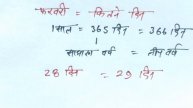 फरवरी = कितने दिन
1 साल = 365 दिन = 366 दिन
साधारण वर्ष = लीप वर्ष
28 दिन = 29 दिन